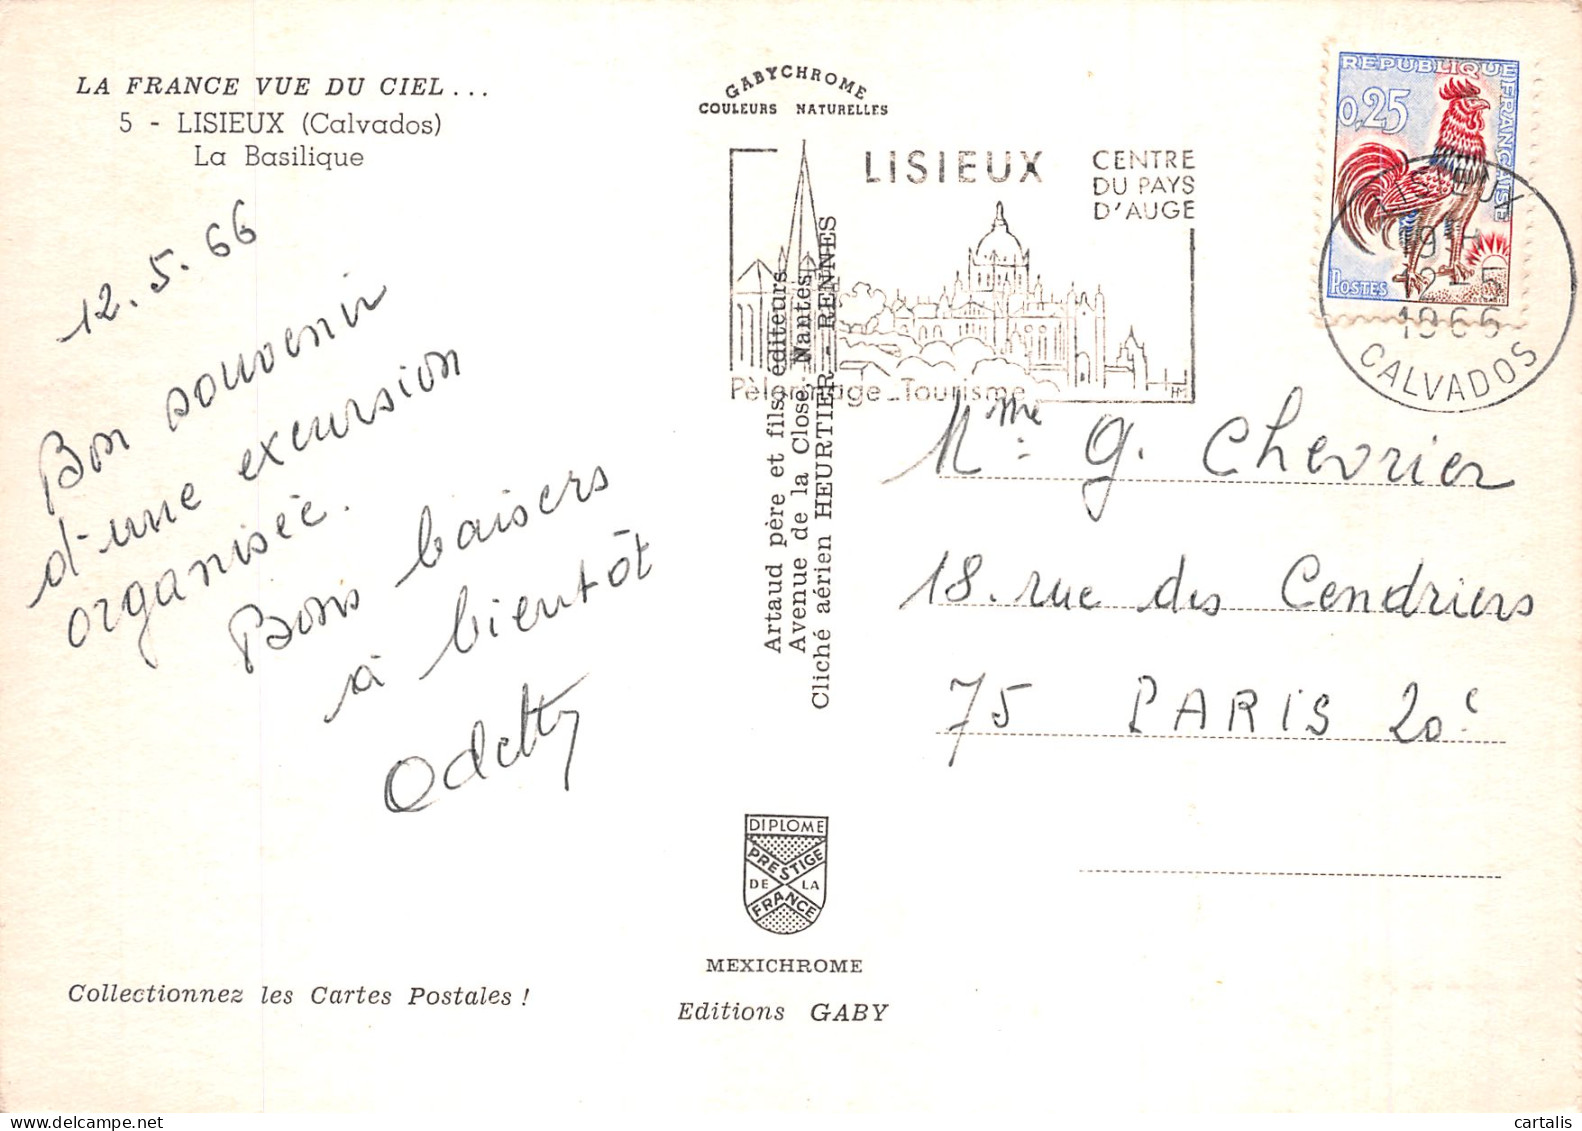 LA FRANCE VUE DU CIEL...
5 - LISIEUX (Calvados)
La Basilique
12.5.66
Bon souvenir
d'une excursion
organisée.
Bons baisers
à bientôt
Odette
GABYCHROME
COULEURS NATURELLES
LISIEUX
CENTRE
DU PAYS
D'AUGE
Pèlerinage_Tourisme
Artaud père et fils, éditeurs
Avenue de la Close, Nantes
Cliché aérien HEURTIER - RENNES
REPUBLIQUE FRANÇAISE
0,25
POSTES
LISIEUX
19H
12-5
1966
CALVADOS
Mme G. Chevrier
18. rue des Cendriers
75 PARIS 20e
DIPLOME
PRESTIGE
DE LA
FRANCE
MEXICHROME
Editions GABY
Collectionnez les Cartes Postales !
cartalis